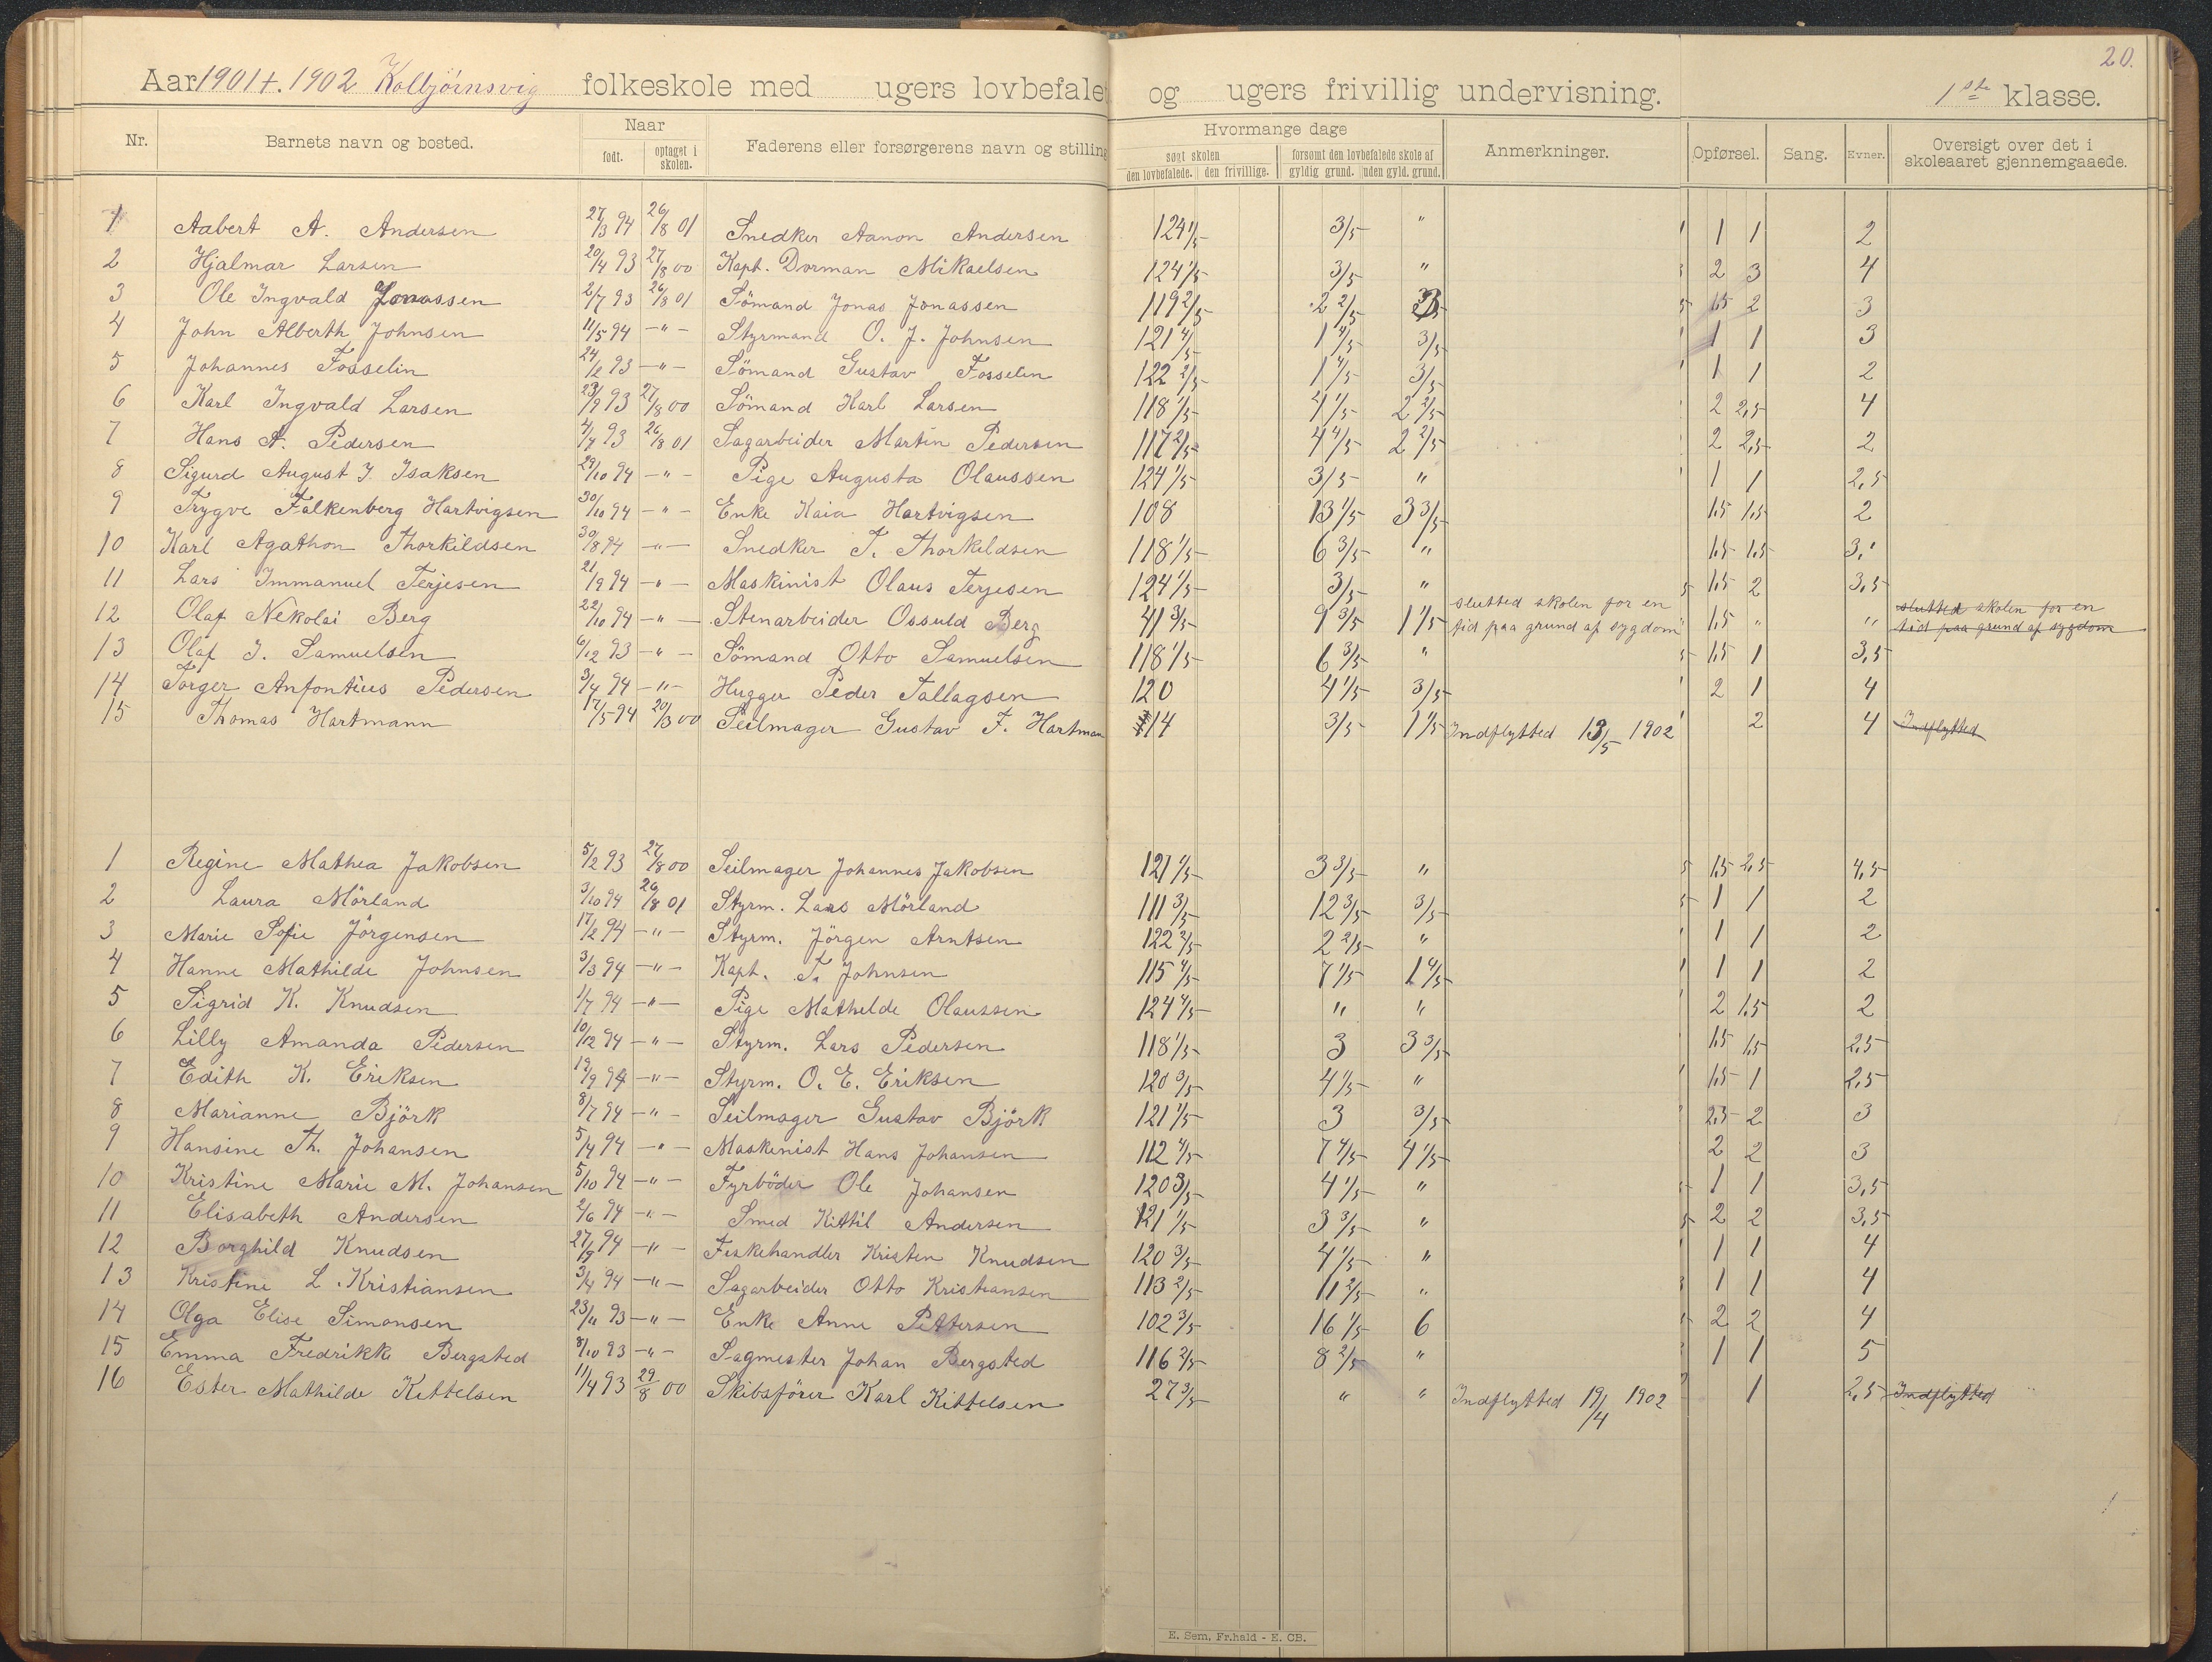 20.
Aar 1901 t. 1902 Kolbjörnsvig folkeskole med ugers lovbefale og ugers frivillig undervisning. 1ste klasse.
Nr. Barnets navn og bosted. Naar Faderens eller forsørgerens navn og stilling Hvormange dage Anmerkninger. Opførsel. Sang. Evner. Oversigt over det i skoleaaret gjennemgaaede.
født. optaget i skolen. søgt skolen forsømt den lovbefalede skole af
den lovbefalede. den frivillige. gyldig grund. uden gyld. grund.
1 Aabert A. Andersen 27/3 94 26/8 01 Snedker Aanon Andersen 124 1/5 3/5 " 1 1 2
2 Hjalmar Larsen 20/4 93 27/8 00 Kapt. Dorman Mikaelsen 124 1/5 3/5 " 2 3 4
3 Ole Ingvald Jonassen 2/7 93 26/8 01 Sömand Jonas Jonassen 119 2/5 2 2/5 1,5 2 3
4 John Alberth Johnsen 11/5 94 -"- Styrmand O. J. Johnsen 121 4/5 1 4/5 3/5 1 1 3
5 Johannes Fosselin 93 -"- Sömand Gustav Fosselin 122 2/5 1 4/5 3/5 1 1 2
6 Karl Ingvald Larsen 23/9 93 27/8 00 Sömand Karl Larsen 118 1/5 4 1/5 2 2/5 2 2,5 4
7 Hans A. Pedersen 93 26/8 01 Sagarbeider Martin Pedersen 117 2/5 4 4/5 2 2/5 2 2,5 2
8 Sigurd August J. Isaksen 29/10 94 -"- Pige Augusta Olaussen 124 1/5 3/5 " 1 1 2,5
9 Trygve Falkenberg Hartvigsen 30/10 94 -"- Enke Kaia Hartvigsen 108 13 1/5 3 3/5 1,5 1,5 2
10 Karl Agathon Thorkildsen 30/8 94 -"- Snedker T. Thorkildsen 118 1/5 6 3/5 " 1,5 1,5 3,
11 Lars Immanuel Terjesen 21/9 94 -"- Maskinist Olaus Terjesen 124 1/5 3/5 " 1,5 2 3,5
12 Olaf Nekolai Berg 22/10 94 -"- Stenarbeider Ossuld Berg 41 3/5 9 3/5 1 1/5 slutted skolen for en tid paa grund af sygdom 1,5 " " slutted skolen for en tid paa grund af sygdom
13 Olaf J. Samuelsen 6/12 93 -"- Sömand Otto Samuelsen 118 1/5 6 3/5 " 1,5 1 3,5
14 Torger Anfontius Pedersen 3/4 94 -"- Hugger Peder Tallagsen 120 4 1/5 3/5 2 1 4
15 Thomas Hartmann 17/5 94 20/3 00 Seilmager Gustav F. Hartman 14 3/5 1 1/5 Indflytted 13/5 1902 2 4 Indflytted
1 Regine Mathea Jakobsen 5/2 93 27/8 00 Seilmager Johannes Jakobsen 121 1/5 3 3/5 " 1,5 2,5 4,5
2 Laura Mörland 3/10 94 26/8 01 Styrm. Lars Mörland 111 3/5 12 3/5 3/5 1 1 2
3 Marie Sofie Jörgensen 17/2 94 -"- Styrm. Jörgen Arntsen 122 2/5 2 2/5 " 1 1 2
4 Hanne Mathilde Johnsen 3/3 94 -"- Kapt. T. Johnsen 115 4/5 7 1/5 1 4/5 1 1 2
5 Sigrid K. Knudsen 1/7 94 -"- Pige Mathelde Olaussen 124 4/5 " " 2 1,5 2
6 Lilly Amanda Pedersen 10/12 94 -"- Styrm. Lars Pedersen 118 1/5 3 3 3/5 1,5 1,5 2,5
7 Edith K. Eriksen 19/9 94 -"- Styrm. O. E. Eriksen 120 3/5 4 1/5 " 1,5 1 2,5
8 Marianne Björk 8/7 94 -"- Seilmager Gustav Björk 121 1/5 3 3/5 2,3 2 3
9 Hansine Th. Johansen 5/4 94 -"- Maskenist Hans Johansen 112 4/5 7 4/5 4 1/5 2 2 3
10 Kristine Marie M. Johansen 5/10 94 -"- Fyrböder Ole Johansen 120 3/5 4 1/5 " 1 1 3,5
11 Elisabeth Andersen 2/6 94 -"- Smed Kittil Andersen 121 1/5 3 3/5 " 2 2 3,5
12 Borghild Knudsen 94 -"- Fiskehandler Kristen Knudsen 120 3/5 4 1/5 " 1 1 4
13 Kristine L. Kristiansen 3/4 94 -"- Sagarbeider Otto Kristiansen 113 2/5 11 2/5 " 1 1 4
14 Olga Elise Simonsen 23/11 93 -"- Enke Anne Pettersen 102 3/5 16 1/5 6 2 2 4
15 Emma Fredrikke Bergsted 8/10 93 -"- Sagmester Johan Bergsted 116 2/5 8 2/5 " 1 1 5
16 Ester Mathilde Kettelsen 11/4 93 29/8 00 Skibsförer Karl Kittelsen 27 3/5 " " Indflytted 19/4 1902 1 2,5 Indflytted
E. Sem, Fr.hald - E. CB.